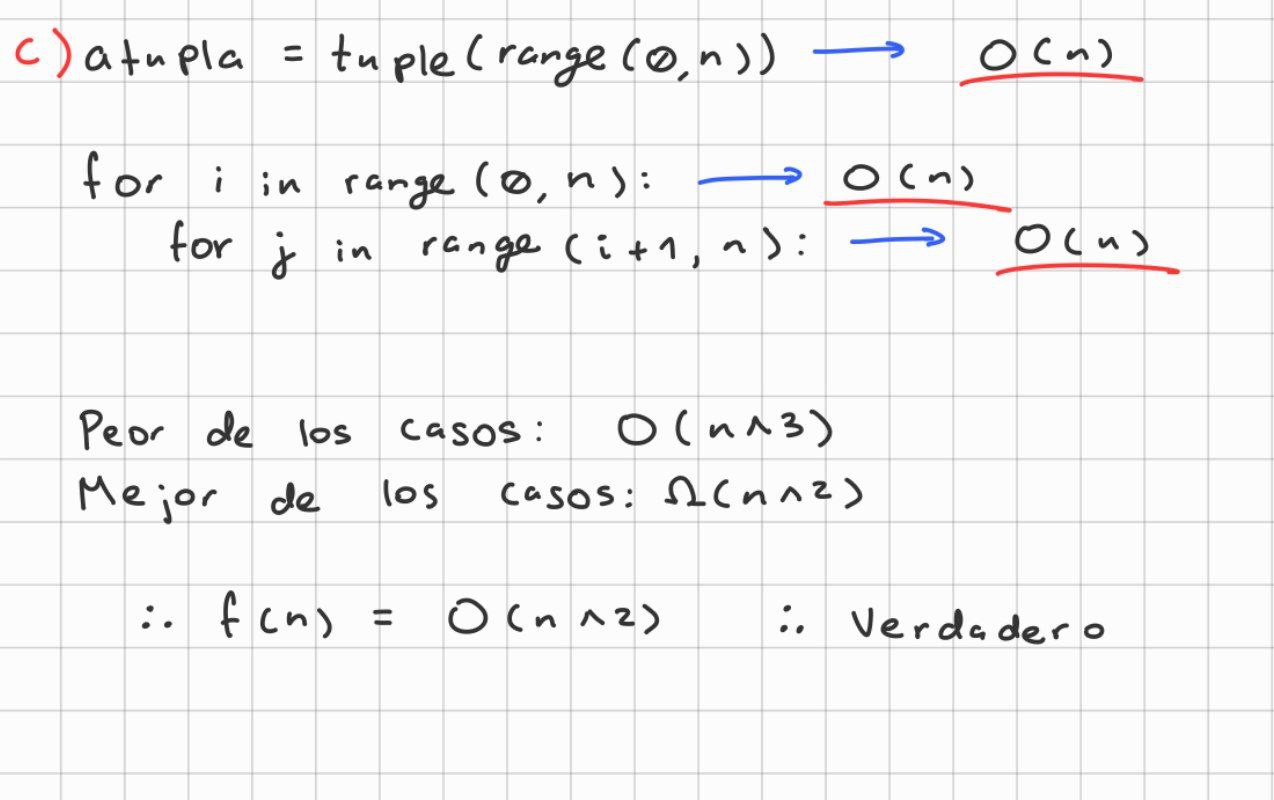 c) atupla = tuple(range(0,n)) → O(n)
for i in range(0,n): → O(n)
for j in range(i+1,n): → O(n)
Peor de los casos: O(n^3)
Mejor de los casos: Ω(n^2)
∴ f(n) = O(n^2) ∴ Verdadero